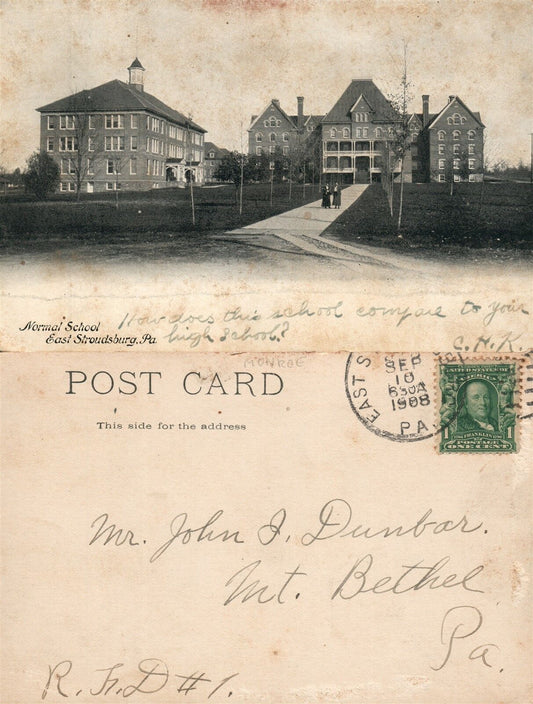 How does this school compare to your
high school?
C.H.K.
Normal School
East Stroudsburg, Pa.
MONROE
POST CARD
This side for the address
EAST S
SEP
10
630A
1908
PA.
UNITED STATES OF
AMERICA
1706 FRANKLIN 1790
1 POSTAGE 1
ONE CENT
Mr. John I. Dunbar.
Mt. Bethel
Pa.
R.F.D #1.